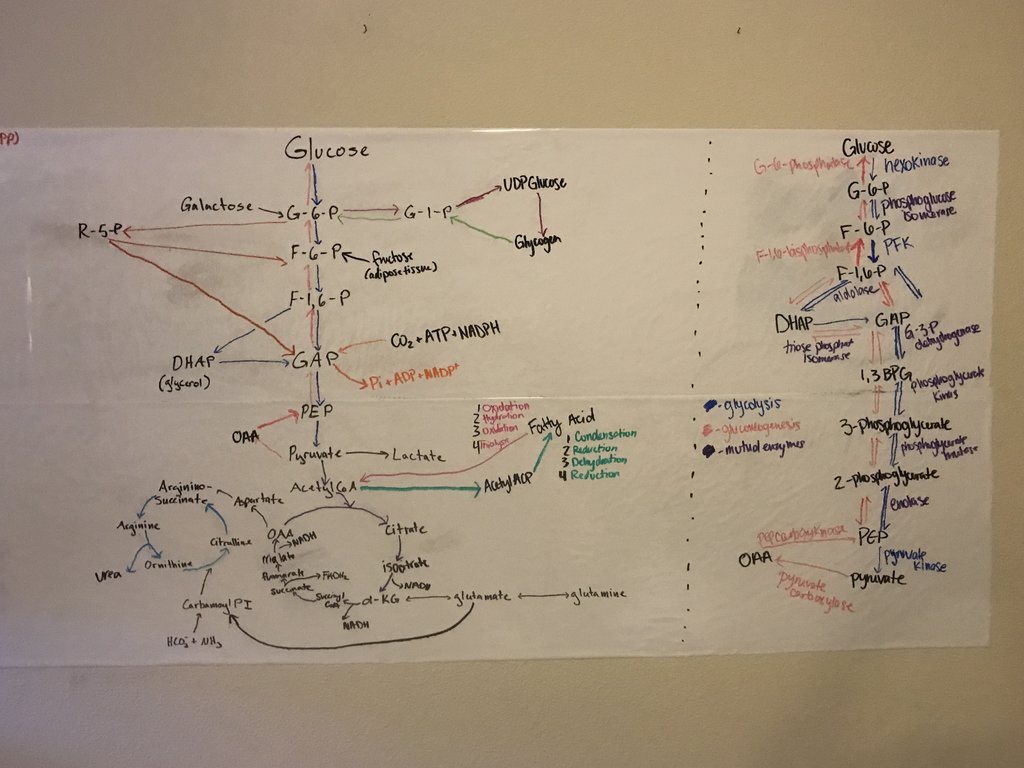 PP)
Glucose
Galactose
G-6-P
G-1-P
UDPGlucose
Glycogen
R-5-P
F-6-P
fructose
(adiposetissue)
F-1,6-P
DHAP
(glycerol)
GAP
CO2 + ATP + NADPH
Pi + ADP + NADP+
PEP
OAA
Pyruvate
Lactate
1 Oxydation
2 Hydration
3 Oxidation
4
Fatty Acid
1 Condensation
2 Reduction
3 Dehydration
4 Reduction
Acetyl CoA
Acetyl ACP
Arginino-
Succinate
Aspartate
Arginine
Citrulline
Urea
Ornithine
Carbamoyl PI
HCO3- + NH3
OAA
NADH
Citrate
Malate
isocitrate
Fumarate
FADH2
NADH
Succinate
Succinyl
CoA
α-KG
glutamate
glutamine
NADH
Glucose
G-6-phosphatase
hexokinase
G-6-P
phosphoglucose
isomerase
F-6-P
F-1,6-bisphosphatase
PFK
F-1,6-P
aldolase
DHAP
GAP
triose phosphat
isomerase
G-3P
dehydrogenase
1,3 BPG
phosphoglycerate
kinase
3-phosphoglycerate
phosphoglycerate
mutase
2-phosphoglycerate
enolase
PEP
pepcarboxykinase
OAA
pyruvate
kinase
pyruvate
pyruvate
carboxylase
-glycolysis
-gluconeogenesis
-mutual enzymes